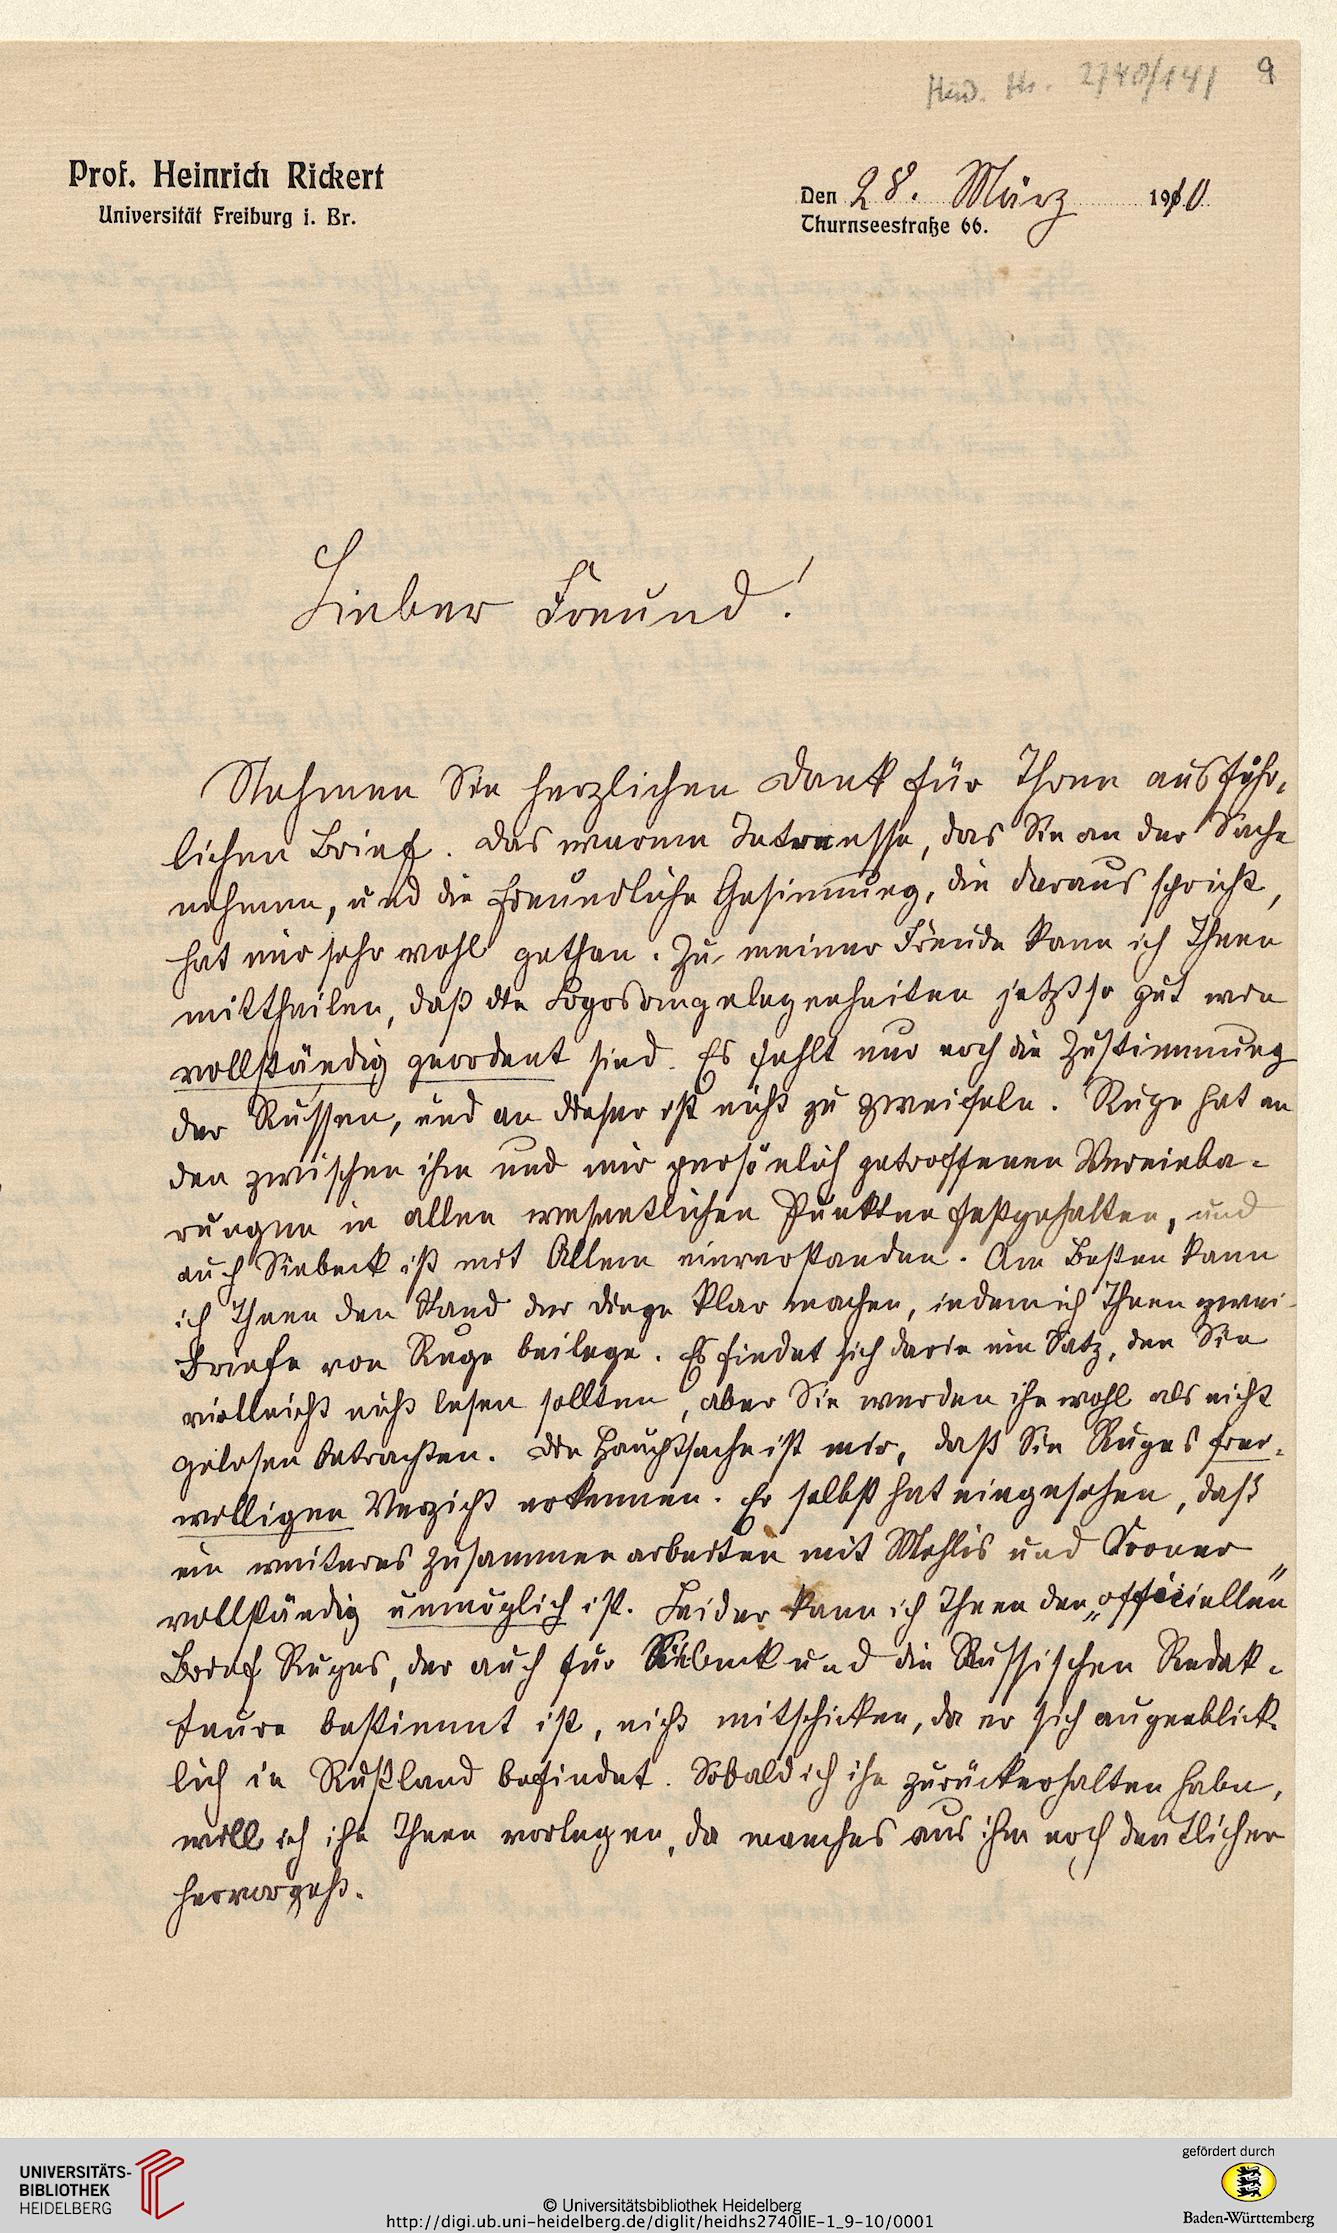 Heid. Hs. 2740/141 9
Prof. Heinrich Rickert
Universität Freiburg i. Br.
Den 28. März 1910
Thurnseestraße 66.
Lieber Freund!
Nehmen Sie herzlichen Dank für Ihren ausführ-
lichen Brief. Das warme Interesse, das Sie an der Sache
nehmen, und die freundliche Gesinnung, die daraus spricht,
hat mir sehr wohl gethan. Zu meiner Freude kann ich Ihnen
mittheilen, daß die Logosangelegenheiten jetzt so gut wie
vollständig geordnet sind. Es fehlt nur noch die Zustimmung
der Russen, und an dieser ist nicht zu zweifeln. Ruge hat an
den zwischen ihm und mir persönlich getroffenen Vereinba-
rungen in allen wesentlichen Punkten festgehalten, und
auch Siebeck ist mit Allem einverstanden. Am Besten kann
ich Ihnen den Stand der Dinge klar machen, indem ich Ihnen zwei
Briefe von Ruge beilege. Es findet sich darin ein Satz, den Sie
vielleicht nicht lesen sollten, aber Sie werden ihn wohl als nicht
gelesen betrachten. Die Hauptsache ist mir, daß Sie Ruges frei-
willigen Verzicht erkennen. Er selbst hat eingesehen, daß
ein weiteres Zusammenarbeiten mit Mehlis und Kroner
vollständig unmöglich ist. Leider kann ich Ihnen den „officiellen"
Brief Ruges, der auch für Siebeck und die Russischen Redak-
teure bestimmt ist, nicht mitschicken, da er sich augenblick-
lich in Rußland befindet. Sobald ich ihn zurückerhalten habe,
will ich ihn Ihnen vorlegen, da manches aus ihm noch deutlicher
hervorgeht.
UNIVERSITÄTS-
BIBLIOTHEK
HEIDELBERG
© Universitätsbibliothek Heidelberg
http://digi.ub.uni-heidelberg.de/diglit/heidhs2740IIE-1_9-10/0001
gefördert durch
Baden-Württemberg